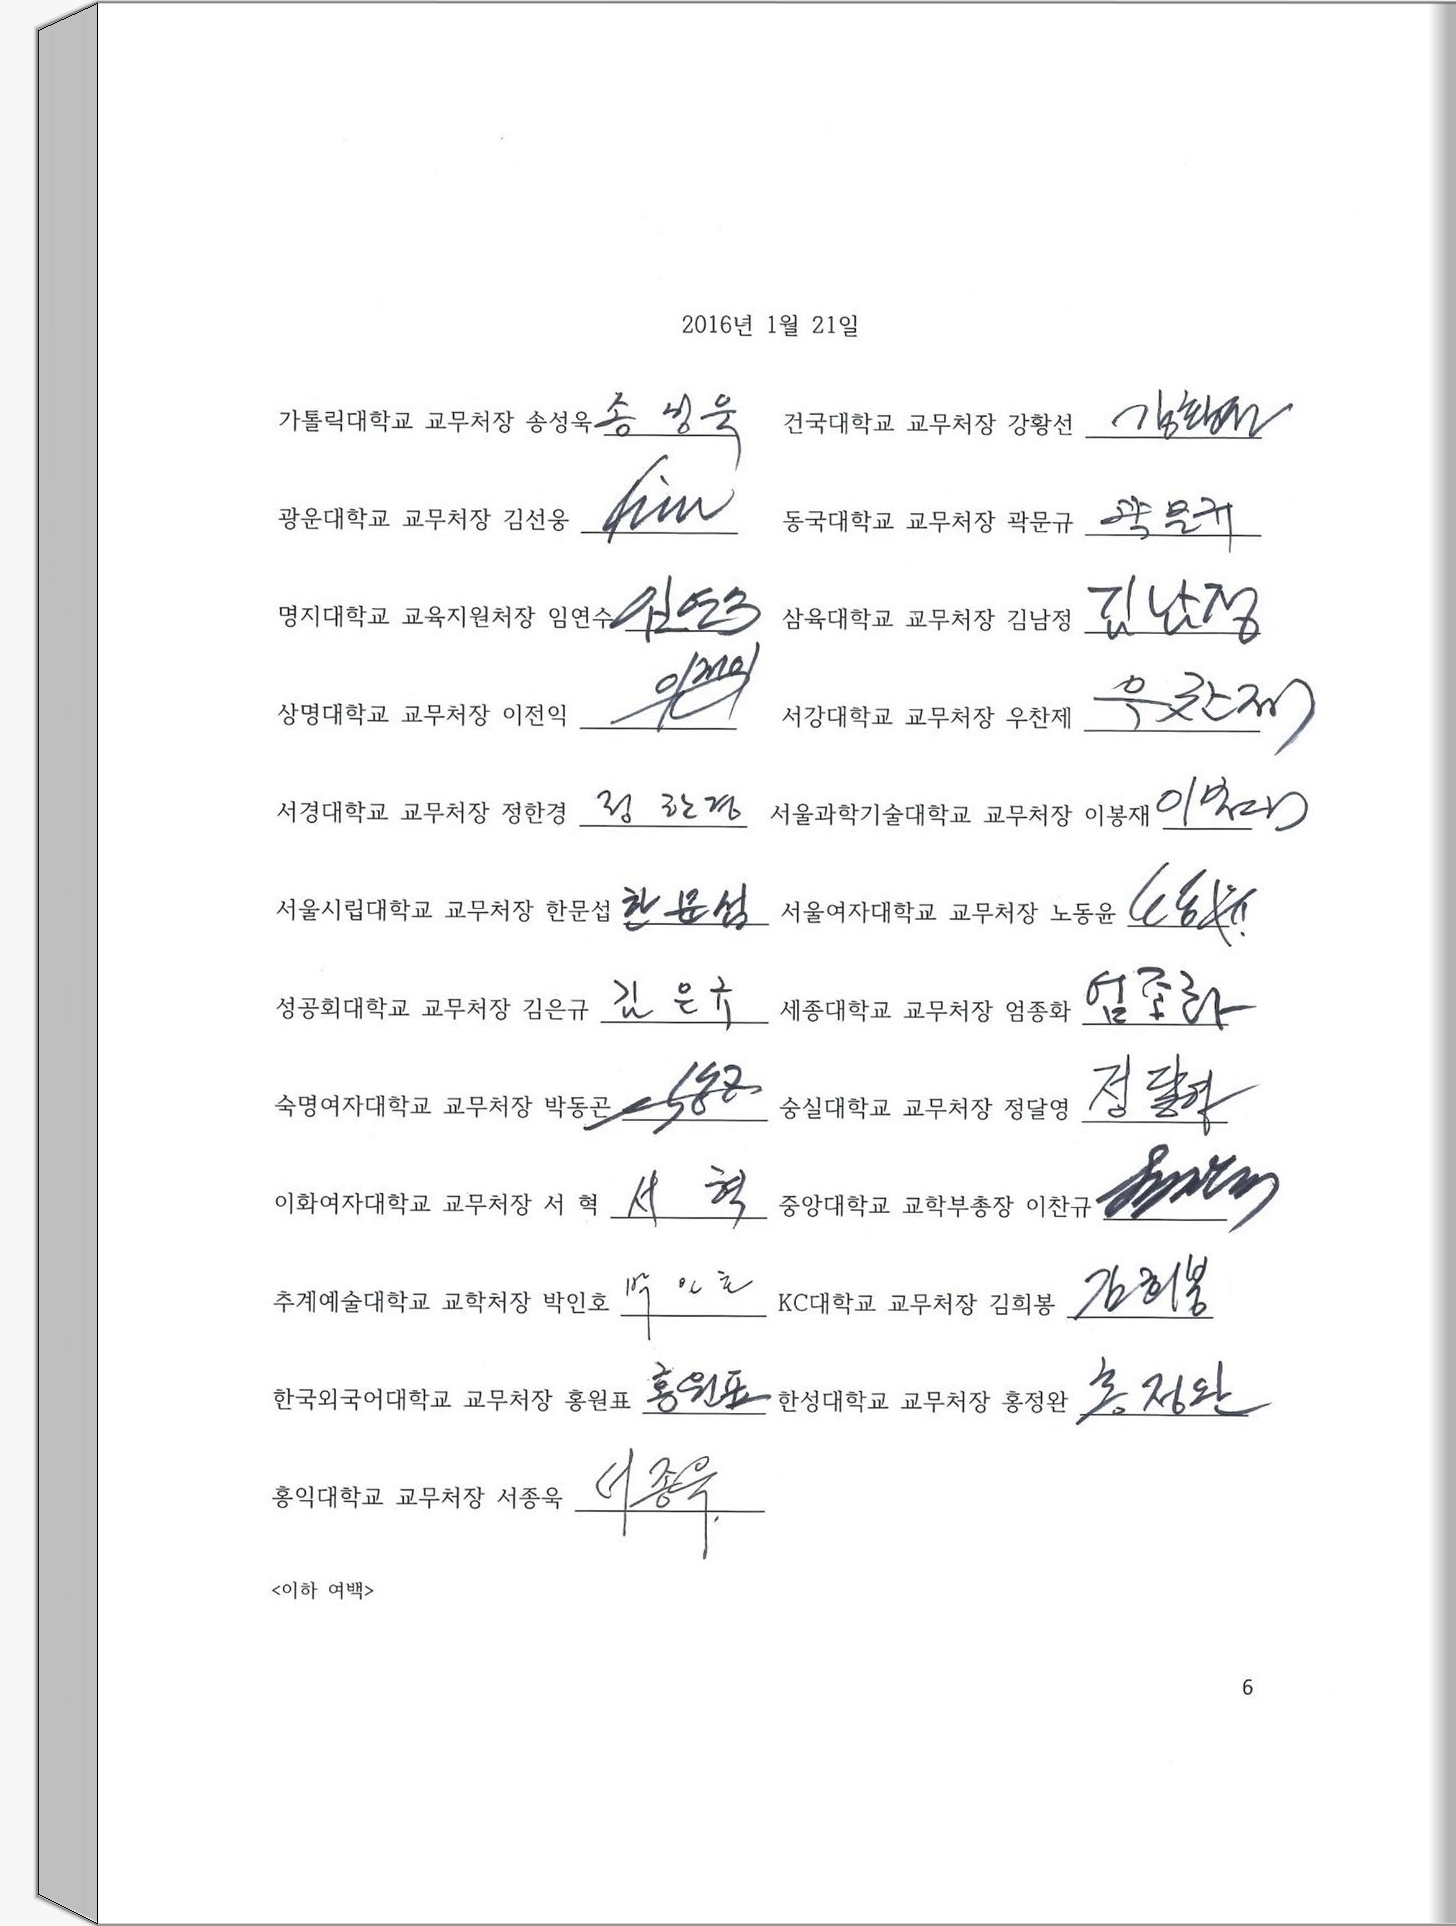 2016년 1월 21일
가톨릭대학교 교무처장 송성욱 송성욱 건국대학교 교무처장 강황선
광운대학교 교무처장 김선웅 동국대학교 교무처장 곽문규 곽문규
명지대학교 교육지원처장 임연수 임연수 삼육대학교 교무처장 김남정 김남정
상명대학교 교무처장 이전익 서강대학교 교무처장 우찬제 우찬제
서경대학교 교무처장 정한경 정한경 서울과학기술대학교 교무처장 이봉재
서울시립대학교 교무처장 한문섭 한문섭 서울여자대학교 교무처장 노동윤
성공회대학교 교무처장 김은규 김은규 세종대학교 교무처장 엄종화 엄종화
숙명여자대학교 교무처장 박동곤 숭실대학교 교무처장 정달영 정달영
이화여자대학교 교무처장 서 혁 서 혁 중앙대학교 교학부총장 이찬규
추계예술대학교 교학처장 박인호 박인호 KC대학교 교무처장 김희봉 김희봉
한국외국어대학교 교무처장 홍원표 홍원표 한성대학교 교무처장 홍정완 홍정완
홍익대학교 교무처장 서종욱 서종욱
<이하 여백>
6